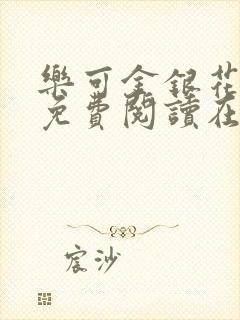 樂可金銀花
免費閱讀在
宸沙